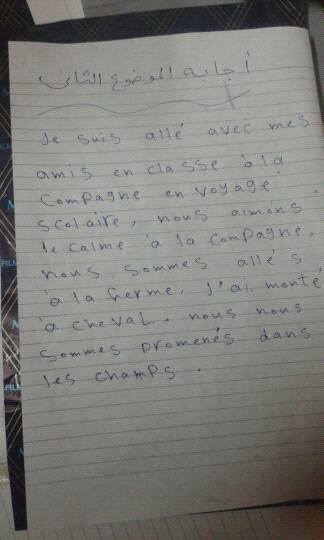 أجابة الموضوع الثانى
Je suis allé avec mes
amis en classe à la
Compagne en voyage
scolaire, nous aimons
le calme à la compagne,
nous sommes allés
à la ferme, J'ai monté
à cheval, nous nous
sommes promenés dans
les champs.